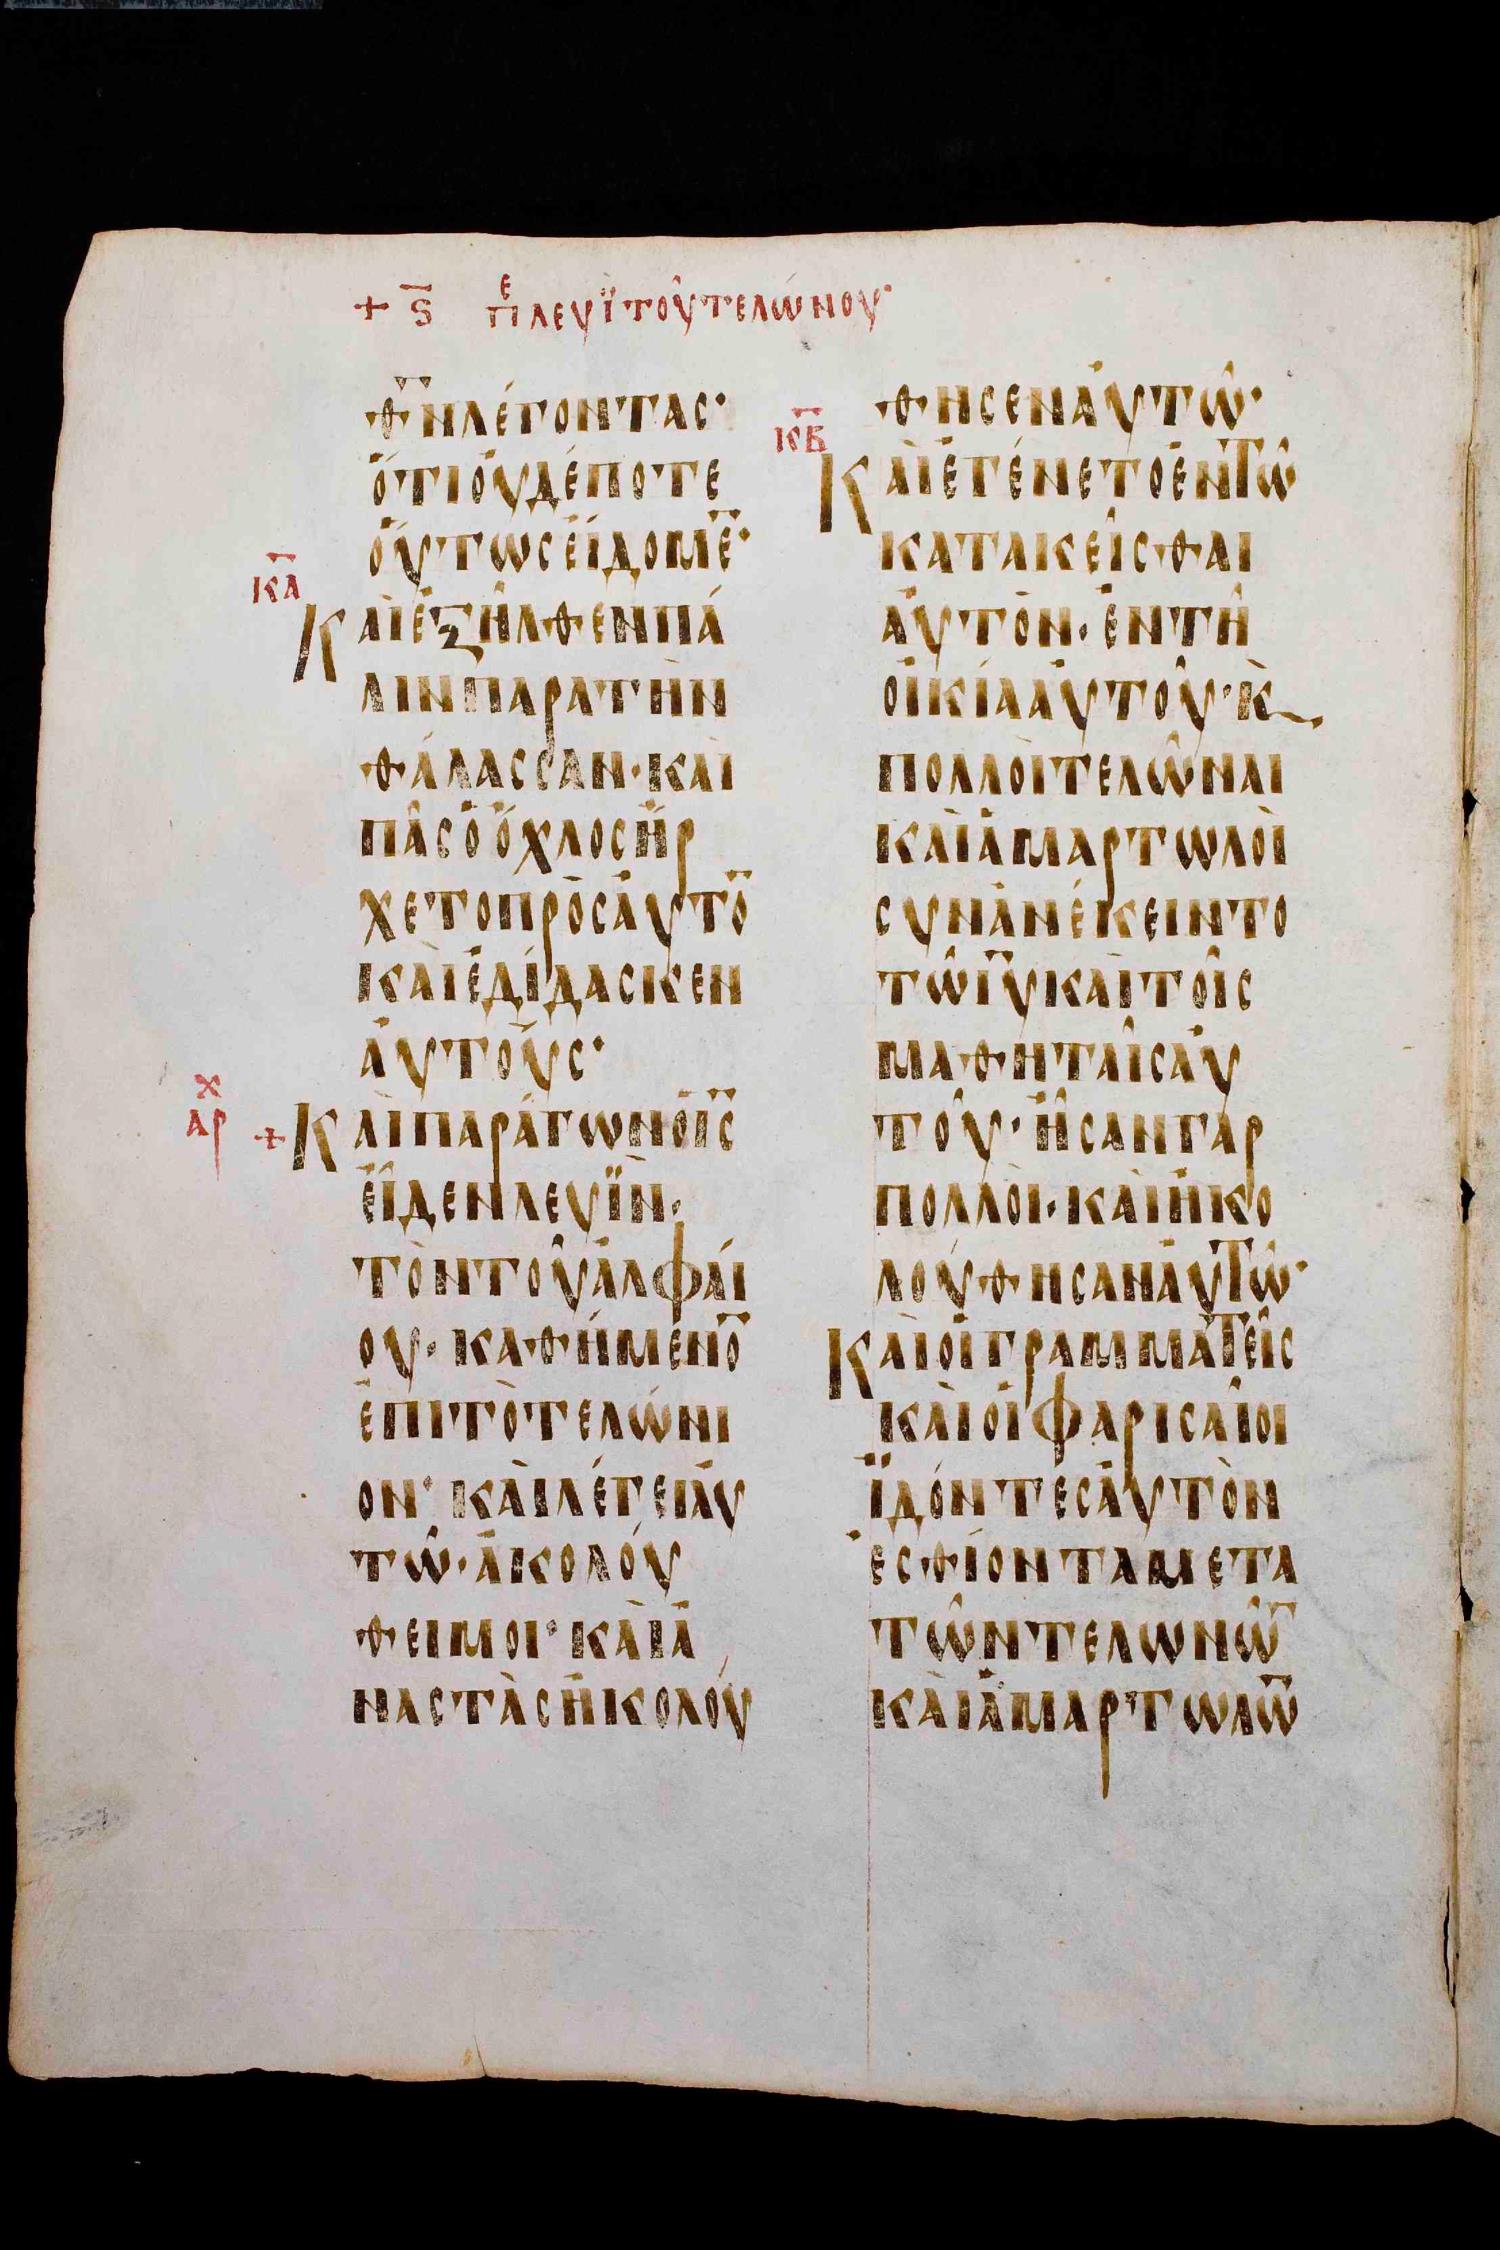 + Ϛ̅ Πε ΛΕΥΪ ΤΟῦ ΤΕΛΏΝΟΥ·
Θ̅Ν̅ΛΈΓΟΝΤΑΣ·
ὍΤΙΟὐΔΈΠΟΤΕ
ΟὕΤΩΣΕἴΔΟΜΕ̅·
ΚΑ̅
ΚΑῚἘΞΗ͂ΛΘΕΝΠΆ
ΛΙΝΠΑΡΑΤῊΝ
ΘΆΛΑΣΣΑΝ·ΚΑῚ
ΠᾶΣὉὌΧΛΟΣἬΡ
ΧΕΤΟΠΡῸΣΑὐΤΟ̅
ΚΑῚἘΔΊΔΑΣΚΕΝ
ΑὐΤΟΎΣ·
ΑΡΧ
+ ΚΑῚΠΑΡΆΓΩΝὉΙ̅Σ̅
ΕἶΔΕΝΛΕΥΪ̀Ν·
ΤῸΝΤΟῦἈΛΦΑΊ
ΟΥ·ΚΑΘΉΜΕΝΟ̅
ἘΠΙΤῸΤΕΛΏΝΙ
ΟΝ· ΚΑῚΛΈΓΕΙΑὐ
Τῶ·ἈΚΟΛΟΎ
ΘΕΙΜΟΙ·ΚΑῚἈ
ΝΑΣΤᾺΣἨΚΟΛΟΎ
ΘΗΣΕΝΑὐΤῶ·
ΚΒ̅
ΚΑῚἘΓΈΝΕΤΟἘΝΤῶ
ΚΑΤΑΚΕῖΣΘΑΙ
ΑὐΤῸΝ·ἘΝΤῆ
ΟἰΚΊΑΑὐΤΟῦ·Κ̀
ΠΟΛΛΟῚΤΕΛῶΝΑΙ
ΚΑῚἉΜΑΡΤΩΛΟῚ
ΣΥΝΑΝΈΚΕΙΝΤΟ
ΤῶΙ̅Υ̅ΚΑῚΤΟῖΣ
ΜΑΘΗΤΑῖΣΑὐ
ΤΟῦ·ἮΣΑΝΓᾺΡ
ΠΟΛΛΟῚ·ΚΑῚἨΚΟ
ΛΟΎΘΗΣΑΝΑὐΤῶ·
ΚΑῚΟἹΓΡΑΜΜΑΤΕῖΣ
ΚΑῚΟἹΦΑΡΙΣΑῖΟΙ
ΪΔΌΝΤΕΣΑὐΤῸΝ
ἘΣΘΊΟΝΤΑΜΕΤΑ
ΤῶΝΤΕΛΩΝῶ̅
ΚΑῚἉΜΑΡΤΩΛῶ̅